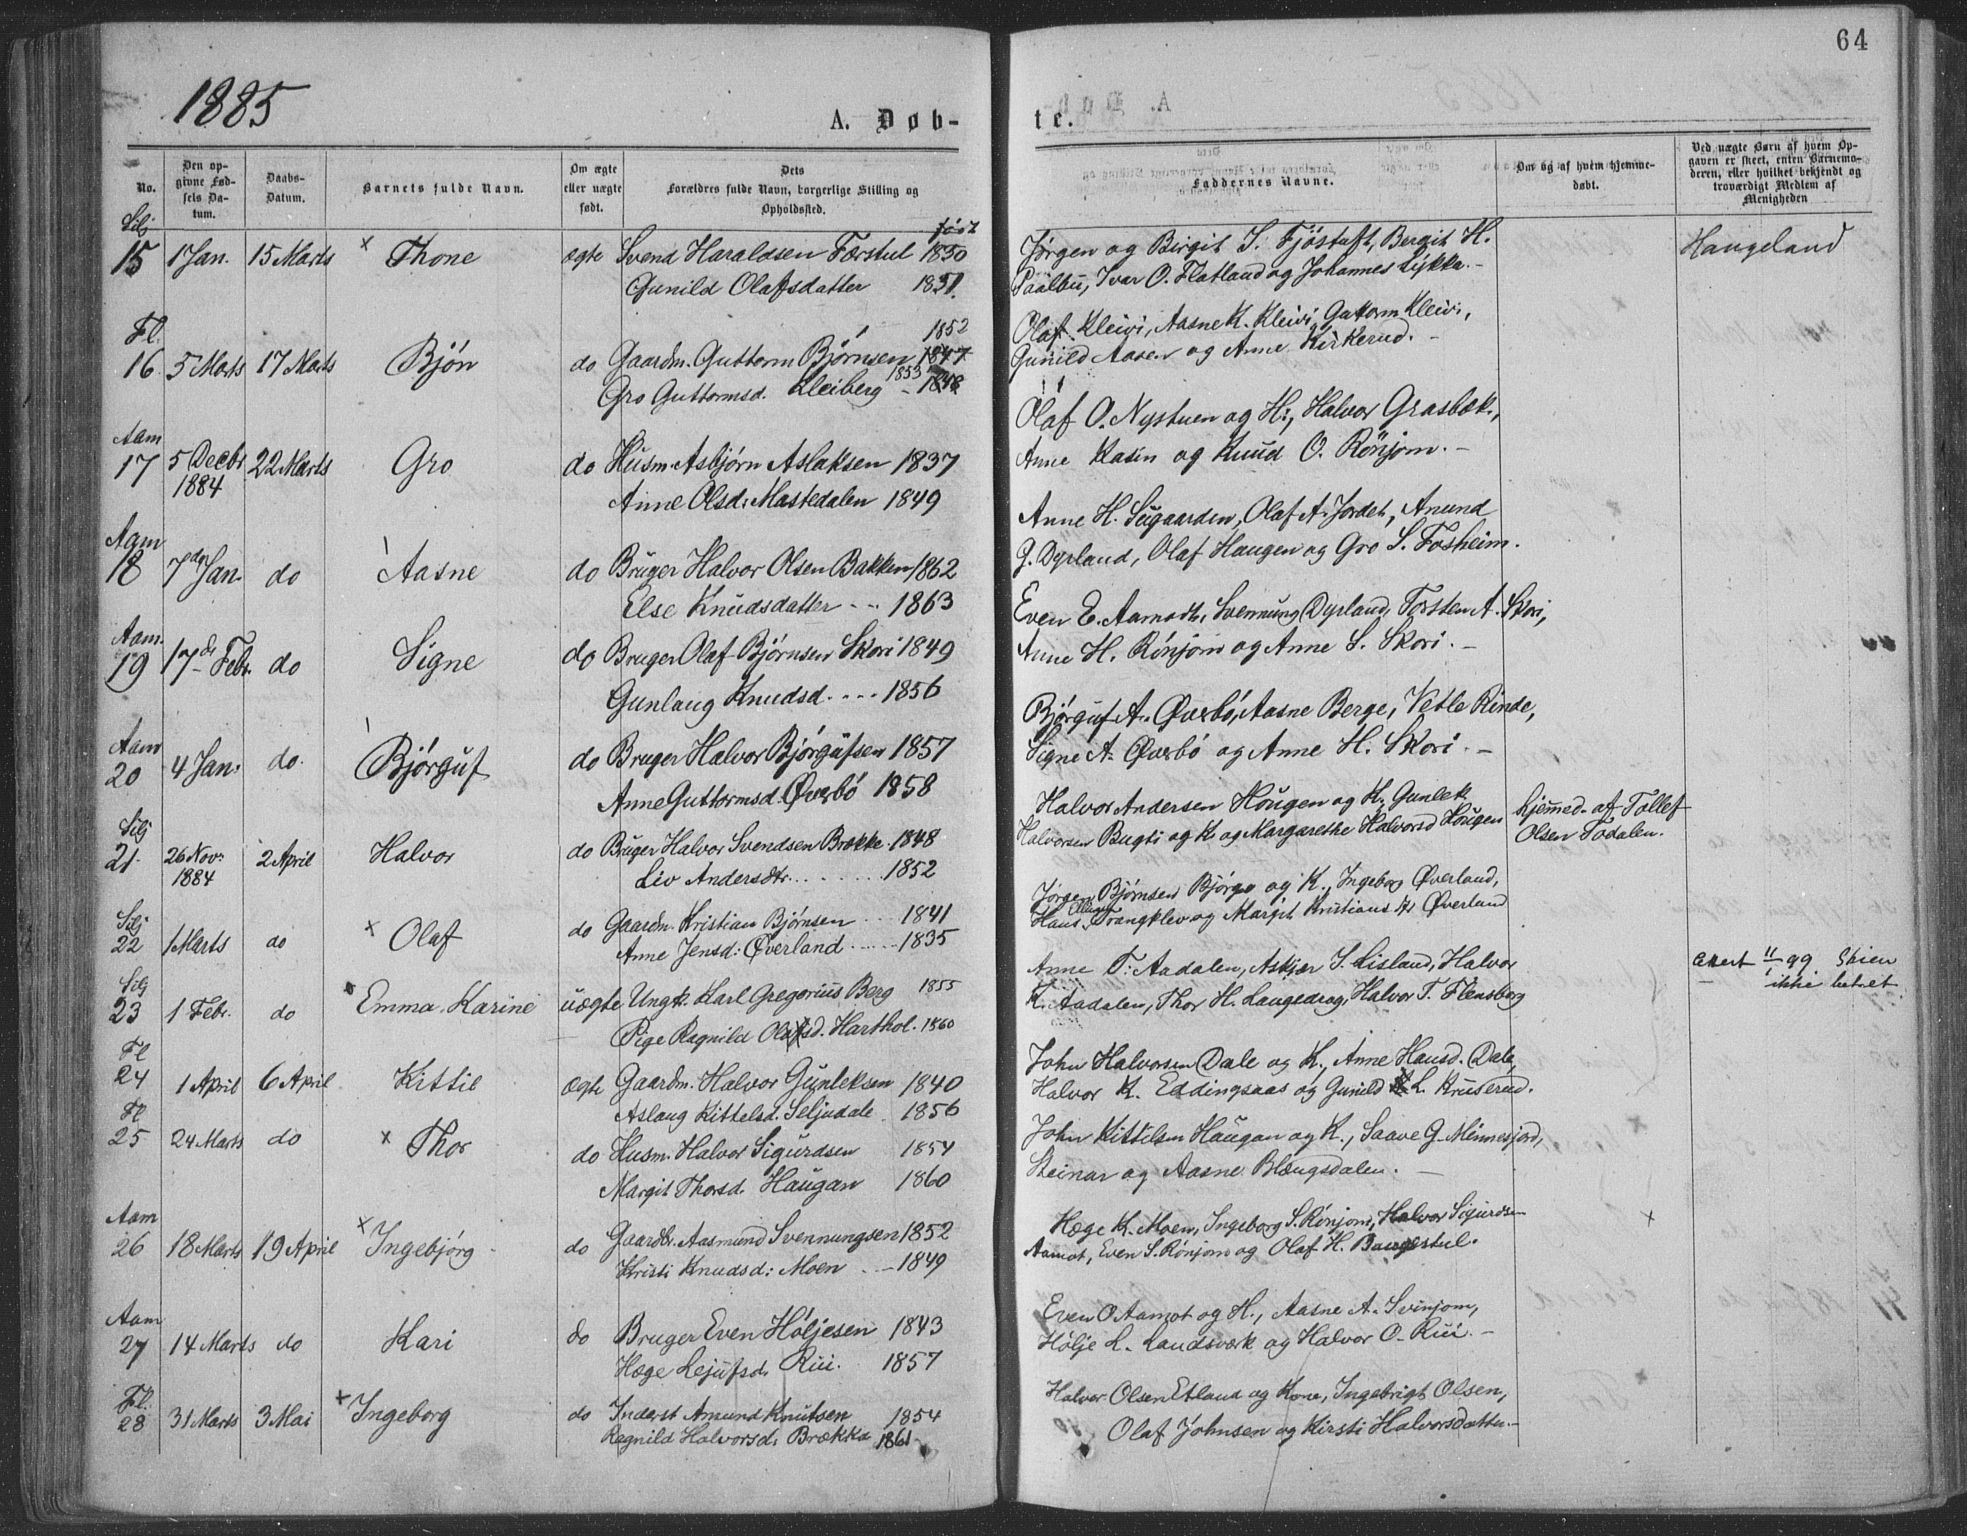 64
1885
A. Døb-
te.
No.
Den op-
givne Fød-
sels Da-
tum.
Daabs-
Datum.
Barnets fulde Navn.
Om ægte
eller uægte
født.
Dets
Forældres fulde Navn, borgerlige Stilling og
Opholdssted.
Faddernes Navne.
Om og af hvem hjemme-
døbt.
Ved uægte Børn af hvem Op-
gaven er skeet, enten Barnemo-
deren, eller hvilket bekjendt og
troværdigt Medlem af
Menigheden
født
Silj
15 1 Jan. 15 Marts × Thone ægte Svend Haraldsen Færstul 1850
Gunild Olafsdatter 1851.
Jørgen og Birgit S. Fjöstuft, Bergit H.
Paalbu, Ivar O. Flatland og Johannes Lykke.-
Haugeland
Fl. 1852
16 5 Marts 17 Marts Bjön do Gaardm. Guttorm Bjørnsen 1847
Gro Guttormsd. Kleiberg 1853 - 1848
Olaf Kleivi, Aasne K. Kleivi, Guttorm Kleivi,
Gunild Aasen og Anne Kirkerud. -
Aam
17 5 Decbr 22 Marts Gro do Husm. Asbjørn Aslaksen 1837
1884
Anne Olsd: Mastedalen 1849
Olaf O. Nystuen og H:, Halvor Grasbæk,
Anne Kasin og Knud O. Rönjom. -
Aam
18 7de Jan. do Aasne do Bruger Halvor Olsen Bakken 1862
Else Knudsdatter - - 1863
Anne H. Sügaarden, Olaf A. Jordet, Anund
G. Dyrland, Olaf Haugen og Gro S. Fosheim.
Aam.
19 17de Febr. do Signe do Bruger Olaf Bjørnsen Skori 1849
Gunlaug Knudsd. ... 1856
Even E. Aamodt, Svennung Dyrland, Torsten A. Skori,
Anne H. Rönjom og Anne S. Skori. -
Aam
20 4 Jan. do. Bjørguf do Bruger Halvor Bjørgufsen 1857
Anne Guttormsd. Øverbö 1858
Bjørguf A. Øverbö, Aasne Berge, Vetle Rinde,
Signe A. Øverbö og Anne H. Skori. -
Silj
21. 26 Nov: 2 April Halvor do Bruger Halvor Svendsen Brække 1848
1884
Liv Andersdtr. ....... 1852
Halvor Andersen Hougen og K. Gunlek
Halvorsen Bugti og K. og Margarethe Halvorsd Hougen
hjemmed. af Tollef
Olsen Todalen.
Silj
22 1 Marts do × Olaf do Gaardm. Kristian Bjørnsen ... 1841
Anne Jensd: Øverland ...... 1835
Jørgen Bjørnsen Bjørge og K., Ingeborg Øverland,
Hans Trangklev og Margit Kristians dtr Øverland
Silj
23 1 Febr. do × Emma Karine uægte Ungk. Karl Gregorius Berg 1855
Pige Ragnild Olafsd. Harthol. 1860
Anne T: Aadalen, Askjær S. Lisland, Halvor
K. Aadalen, Thor H. Laugedrag, Halvor T. Flensborg
Attest 11/1 99 Skien
ikke betalt
Fl
24 1 April 6 April Kittil ægte Gaardm. Halvor Gunleksen 1840
Aslaug Kittelsd. Seljudale 1856
John Halvorsen Dale og K., Anne Hansd. Dale,
Halvor K. Eddingsaas og Gunild L. Kruserud.
Fl
25 24 Marts do × Thor do Husm. Halvor Sigurdsen 1854
Margit Thorsd. Haugan 1860
John Kittilsen Haugan og K., Saave G. Minnesjord,
Steinar og Aasne Blengsdalen. -
Aam
26 18 Marts 19 April × Ingebjørg do Gaardbr. Aasmund Svennungsen 1852
Kristi Knudsd: Moen - 1849
Hæge K. Moen, Ingeborg S. Rönjom, Halvor Sigurdsen
Aamot, Even S. Rönjom og Olaf H. Baugestul.
×
Aam
27 14 Marts do Kari do Bruger Even Høljesen 1843
Hæge Lejufsd. Rui. 1857
Even O. Aamot og H., Aasne A. Svinjom,
Hølje L. Landsværk og Halvor O. Rui. -
Fl.
28 31 Marts 3 Mai × Ingeborg do Inderst Amund Knutsen 1854
Ragnild Halvorsd: Brække 1861
Halvor Olsen Etland og Kone, Ingebrigt Olsen,
Olaf Johnsen og Kirsti Halvorsdatter. -